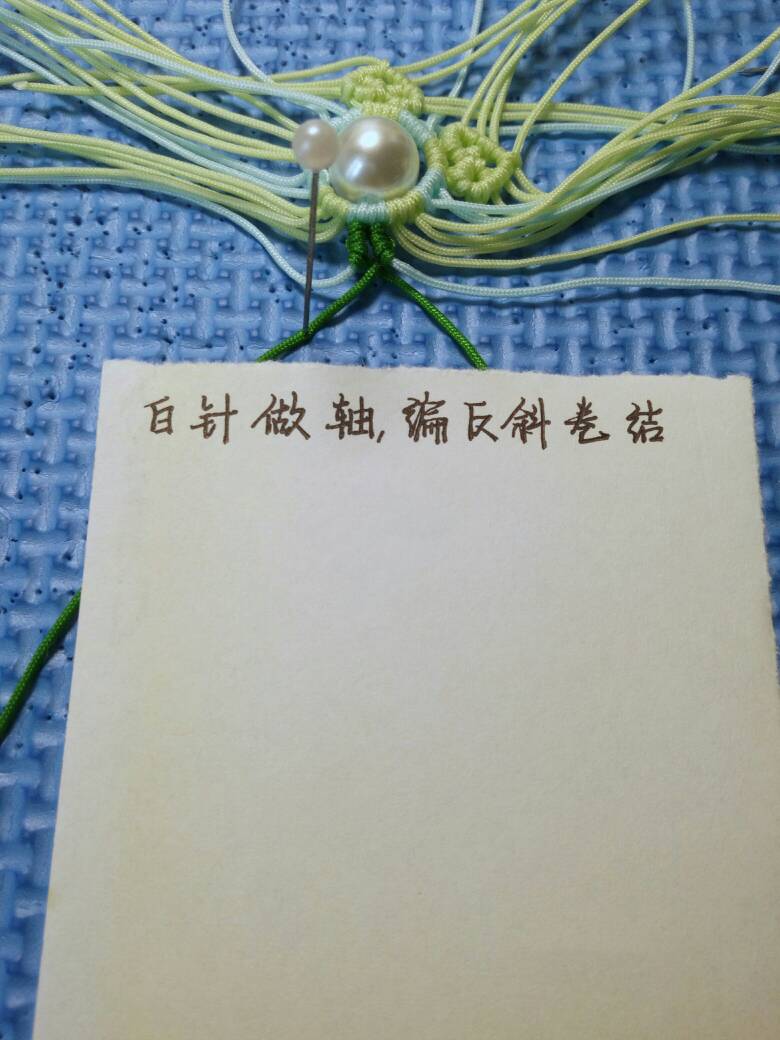 白针做轴,编反斜卷结